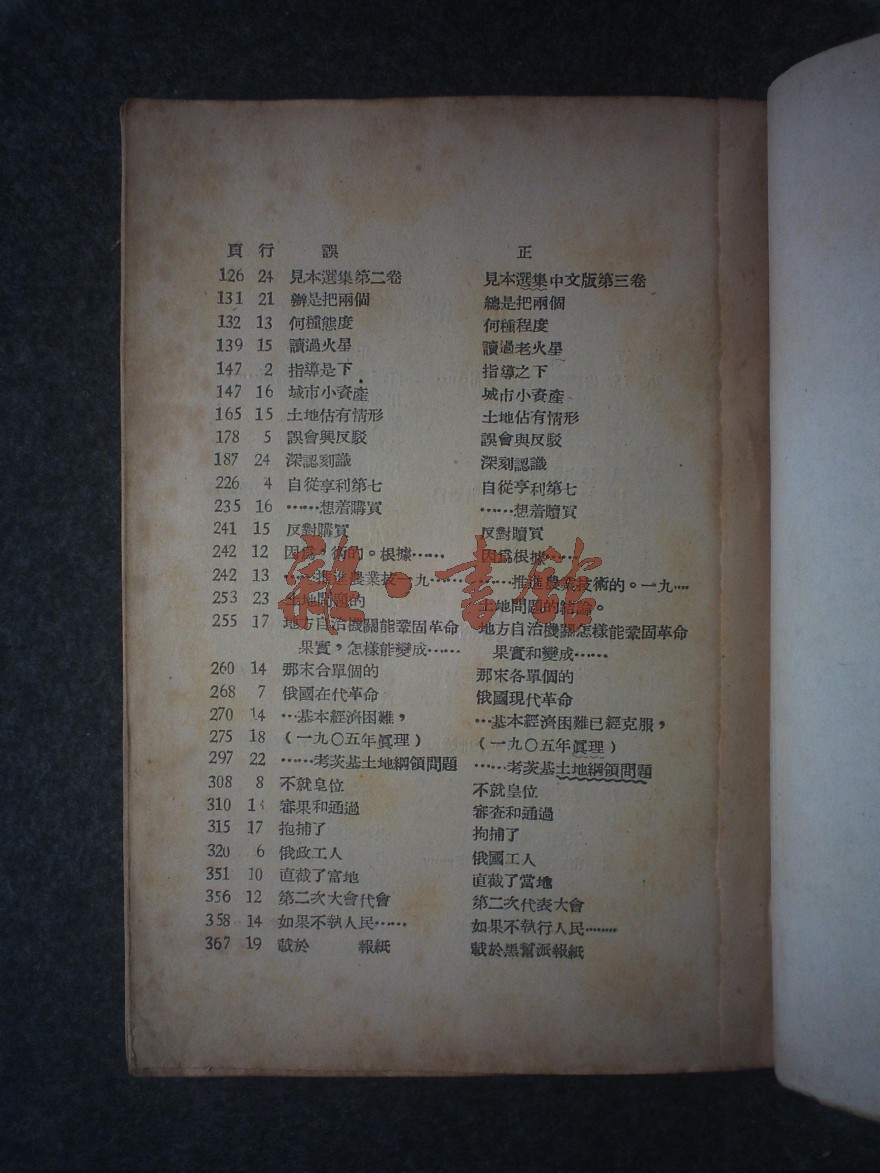 頁 行 誤 正
126 24 見本選集第二卷 見本選集中文版第三卷
131 21 辦是把兩個 總是把兩個
132 13 何種態度 何種程度
139 15 讀過火星 讀過老火星
147 2 指導是下 指導之下
147 16 域市小資產 城市小資產
165 15 土地佔有情形 土地佔有情形
178 5 誤會興反駁 誤會與反駁
187 24 深認刻識 深刻認識
226 4 自從享利第七 自從亨利第七
235 16 ……想着購買 ……想着贖買
241 15 反對購買 反對贖買
242 12 因爲,術的。根據…… 因爲根據……
242 13 ……推進農業技一九…… ……推進農業技術的。一九……
253 23 土地問題的 土地問題的結論。
255 17 地方自治機關能鞏固革命 地方自治機關怎樣能鞏固革命
果實,怎樣能變成…… 果實和變成……
260 14 那末合單個的 那末各單個的
268 7 俄國在代革命 俄國現代革命
270 14 …基本經濟困難, …基本經濟困難已經克服,
275 18 (一九〇五年眞理) (一九〇五年眞理)
297 22 ……考茨基土地綱領問題 ……考茨基土地綱領問題
308 8 不就皇位 不就皇位
310 1 審果和通過 審查和通過
315 17 抱捕了 拘捕了
320 6 俄政工人 俄國工人
351 10 直截了富地 直截了當地
356 12 第二次大會代會 第二次代表大會
358 14 如果不執人民…… 如果不執行人民………
367 19 載於 報紙 載於黑幫派報紙
雜·書館